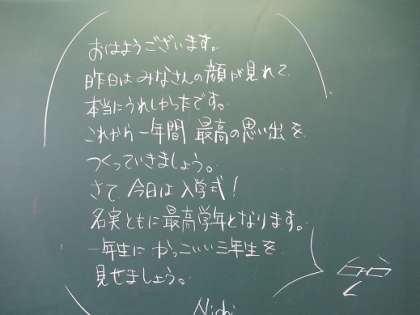 おはようございます。
昨日はみなさんの顔が見れて、
本当にうれしかったです。
これから一年間 最高の思い出を
つくっていきましょう。
さて 今日は入学式！
名実ともに最高学年となります。
一年生に かっこいい三年生を
見せましょう。